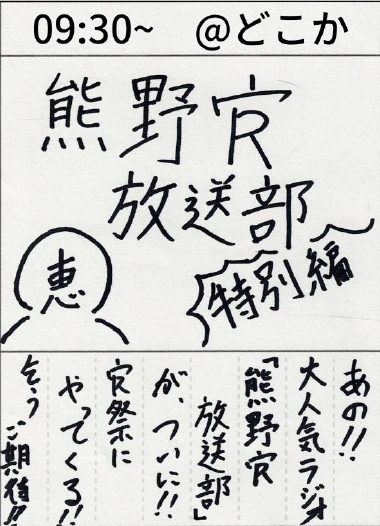 09:30~ @どこか
熊野寮
放送部
特別編
恵
あの!!
大人気ラジオ
「熊野寮
放送部」
が、ついに!!
寮祭に
やってくる!!
乞うご期待!!